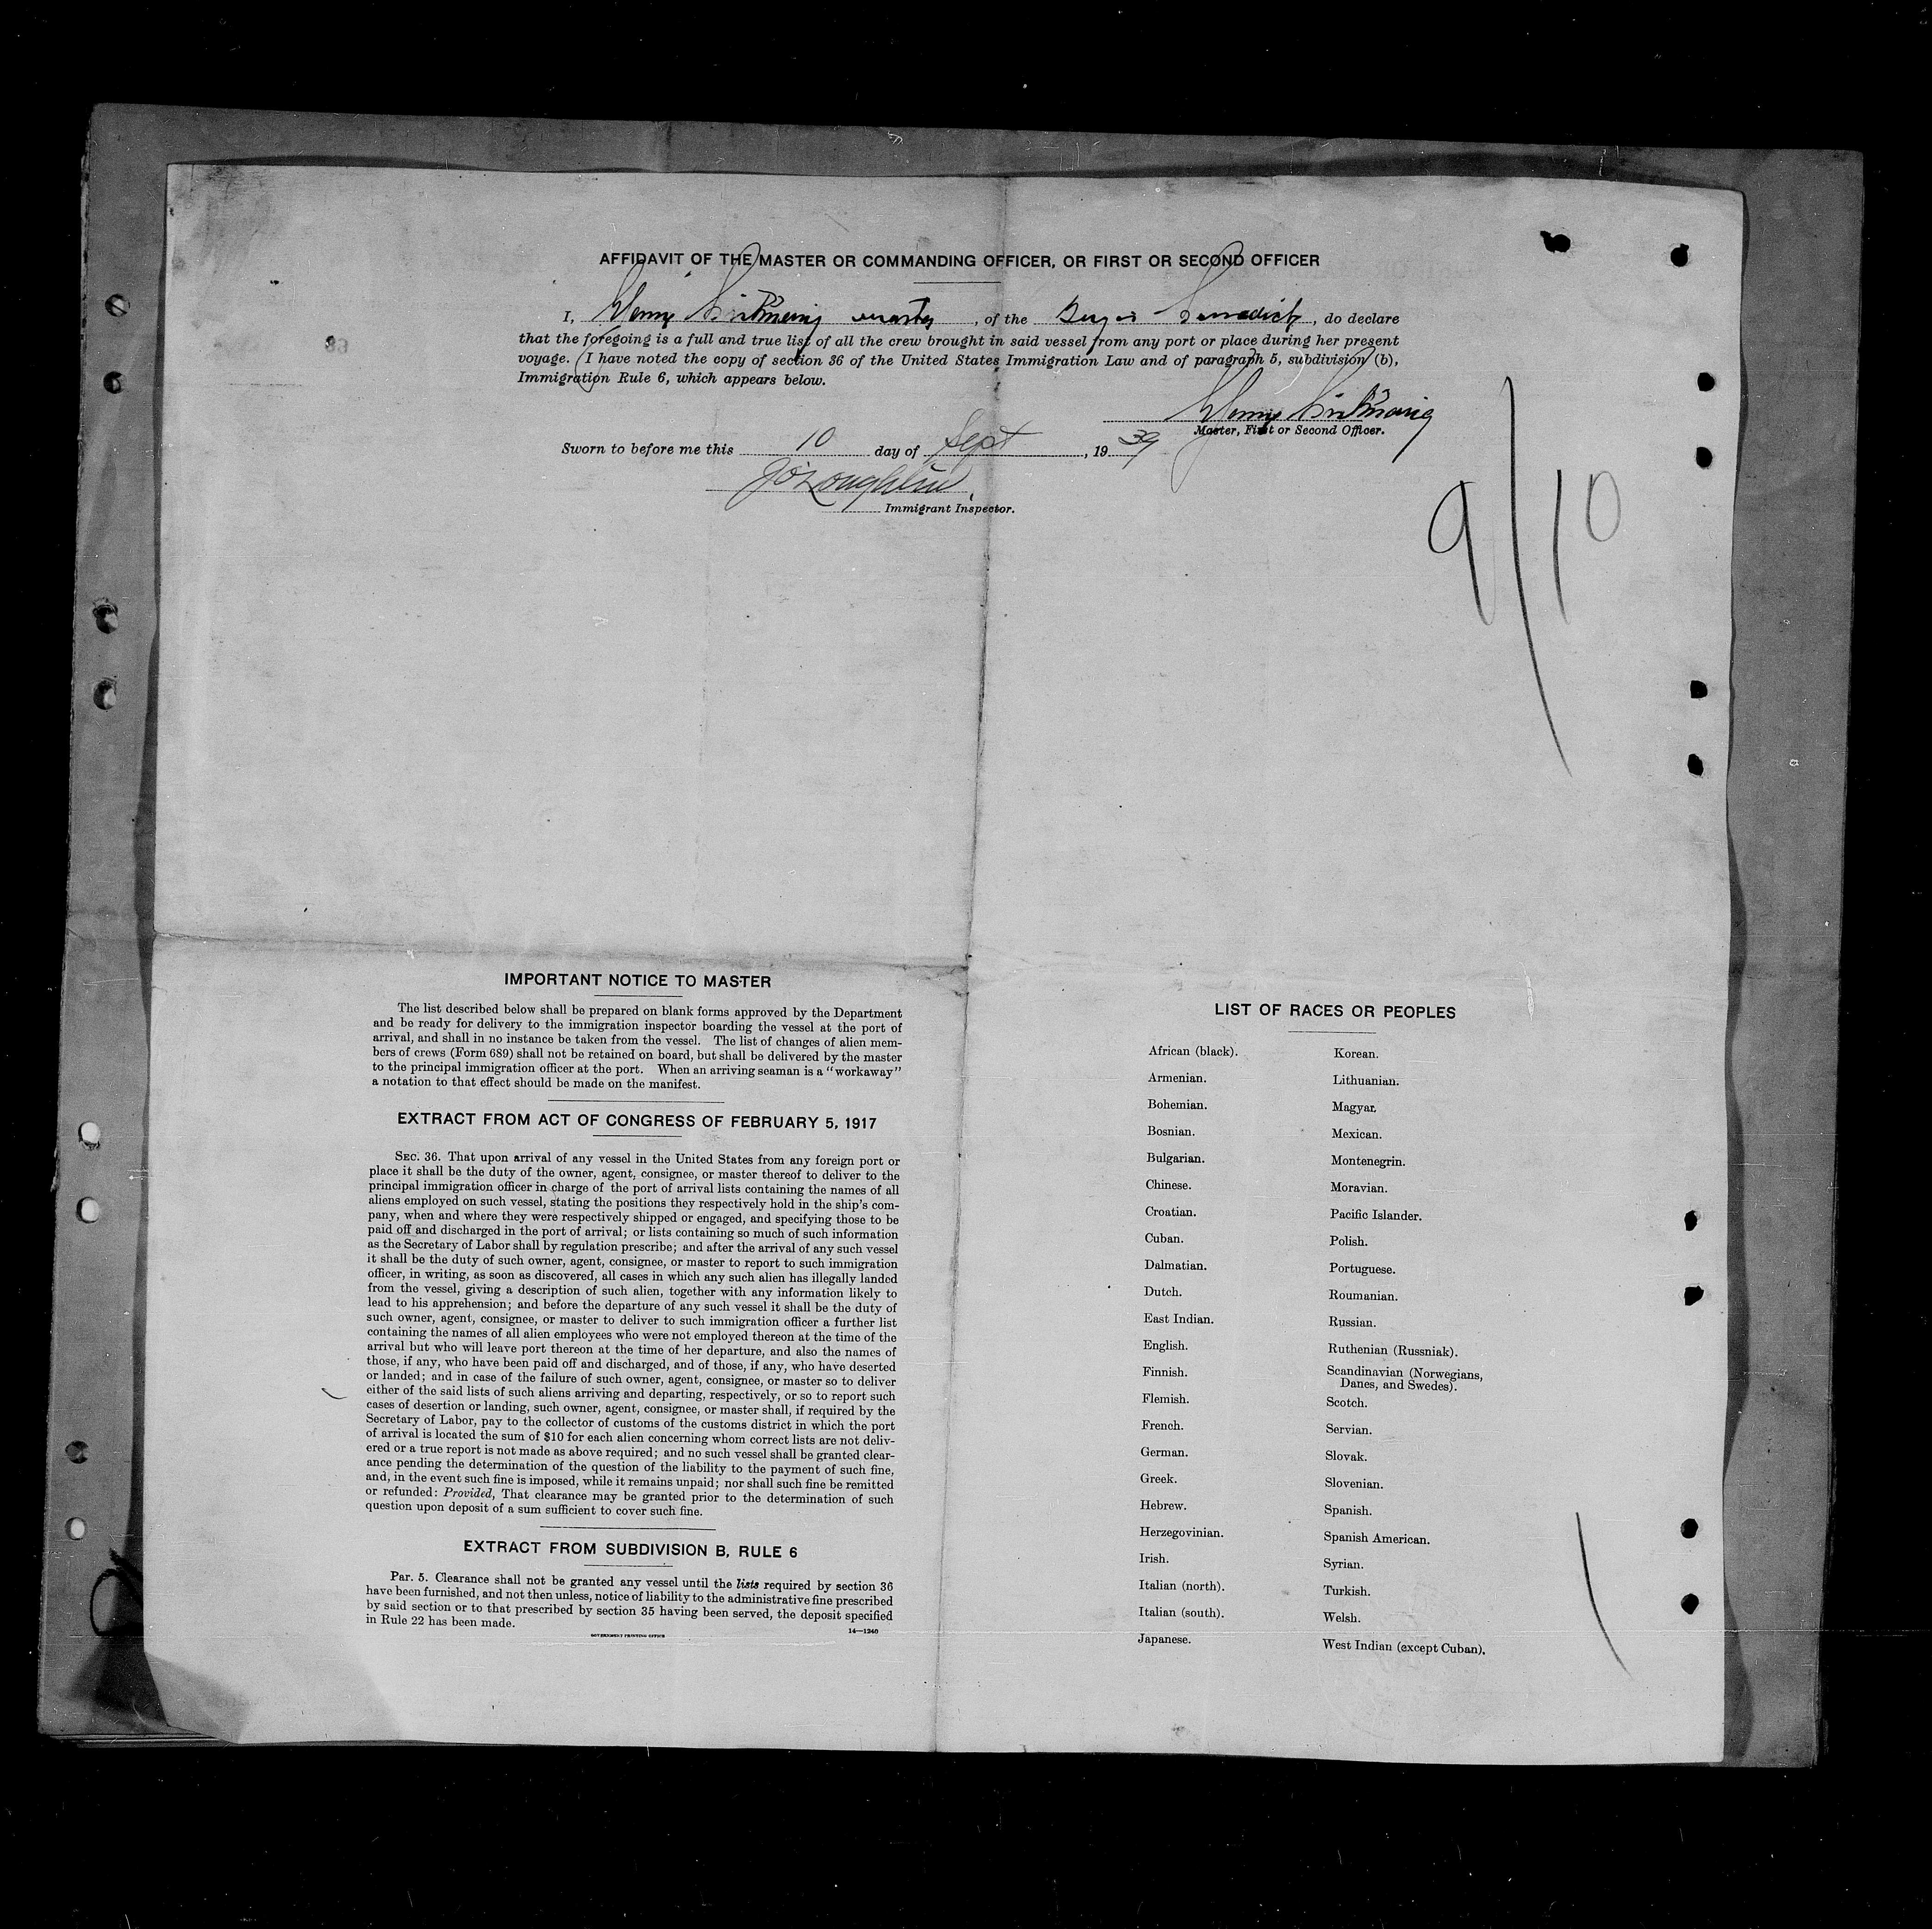 AFFIDAVIT OF THE MASTER OR COMMANDING OFFICER, OR FIRST OR SECOND OFFICER
I, Henry master, of the Benedict, do declare
that the foregoing is a full and true list of all the crew brought in said vessel from any port or place during her present
voyage. I have noted the copy of section 36 of the United States Immigration Law and of paragraph 5, subdivision (b),
Immigration Rule 6, which appears below.
Henry
Master, First or Second Officer.
Sworn to before me this 10 day of Sept, 19 39
J O'Loughlin
Immigrant Inspector.
9/10
IMPORTANT NOTICE TO MASTER
The list described below shall be prepared on blank forms approved by the Department
and be ready for delivery to the immigration inspector boarding the vessel at the port of
arrival, and shall in no instance be taken from the vessel. The list of changes of alien mem-
bers of crews (Form 689) shall not be retained on board, but shall be delivered by the master
to the principal immigration officer at the port. When an arriving seaman is a "workaway"
a notation to that effect should be made on the manifest.
EXTRACT FROM ACT OF CONGRESS OF FEBRUARY 5, 1917
SEC. 36. That upon arrival of any vessel in the United States from any foreign port or
place it shall be the duty of the owner, agent, consignee, or master thereof to deliver to the
principal immigration officer in charge of the port of arrival lists containing the names of all
aliens employed on such vessel, stating the positions they respectively hold in the ship's com-
pany, when and where they were respectively shipped or engaged, and specifying those to be
paid off and discharged in the port of arrival; or lists containing so much of such information
as the Secretary of Labor shall by regulation prescribe; and after the arrival of any such vessel
it shall be the duty of such owner, agent, consignee, or master to report to such immigration
officer, in writing, as soon as discovered, all cases in which any such alien has illegally landed
from the vessel, giving a description of such alien, together with any information likely to
lead to his apprehension; and before the departure of any such vessel it shall be the duty of
such owner, agent, consignee, or master to deliver to such immigration officer a further list
containing the names of all alien employees who were not employed thereon at the time of the
arrival but who will leave port thereon at the time of her departure, and also the names of
those, if any, who have been paid off and discharged, and of those, if any, who have deserted
or landed; and in case of the failure of such owner, agent, consignee, or master so to deliver
either of the said lists of such aliens arriving and departing, respectively, or so to report such
cases of desertion or landing, such owner, agent, consignee, or master shall, if required by the
Secretary of Labor, pay to the collector of customs of the customs district in which the port
of arrival is located the sum of $10 for each alien concerning whom correct lists are not deliv-
ered or a true report is not made as above required; and no such vessel shall be granted clear-
ance pending the determination of the question of the liability to the payment of such fine,
and, in the event such fine is imposed, while it remains unpaid; nor shall such fine be remitted
or refunded: Provided, That clearance may be granted prior to the determination of such
question upon deposit of a sum sufficient to cover such fine.
EXTRACT FROM SUBDIVISION B, RULE 6
Par. 5. Clearance shall not be granted any vessel until the lists required by section 36
have been furnished, and not then unless, notice of liability to the administrative fine prescribed
by said section or to that prescribed by section 35 having been served, the deposit specified
in Rule 22 has been made.
GOVERNMENT PRINTING OFFICE 14—1240
LIST OF RACES OR PEOPLES
African (black).
Armenian.
Bohemian.
Bosnian.
Bulgarian.
Chinese.
Croatian.
Cuban.
Dalmatian.
Dutch.
East Indian.
English.
Finnish.
Flemish.
French.
German.
Greek.
Hebrew.
Herzegovinian.
Irish.
Italian (north).
Italian (south).
Japanese.
Korean.
Lithuanian.
Magyar.
Mexican.
Montenegrin.
Moravian.
Pacific Islander.
Polish.
Portuguese.
Roumanian.
Russian.
Ruthenian (Russniak).
Scandinavian (Norwegians,
Danes, and Swedes).
Scotch.
Servian.
Slovak.
Slovenian.
Spanish.
Spanish American.
Syrian.
Turkish.
Welsh.
West Indian (except Cuban).